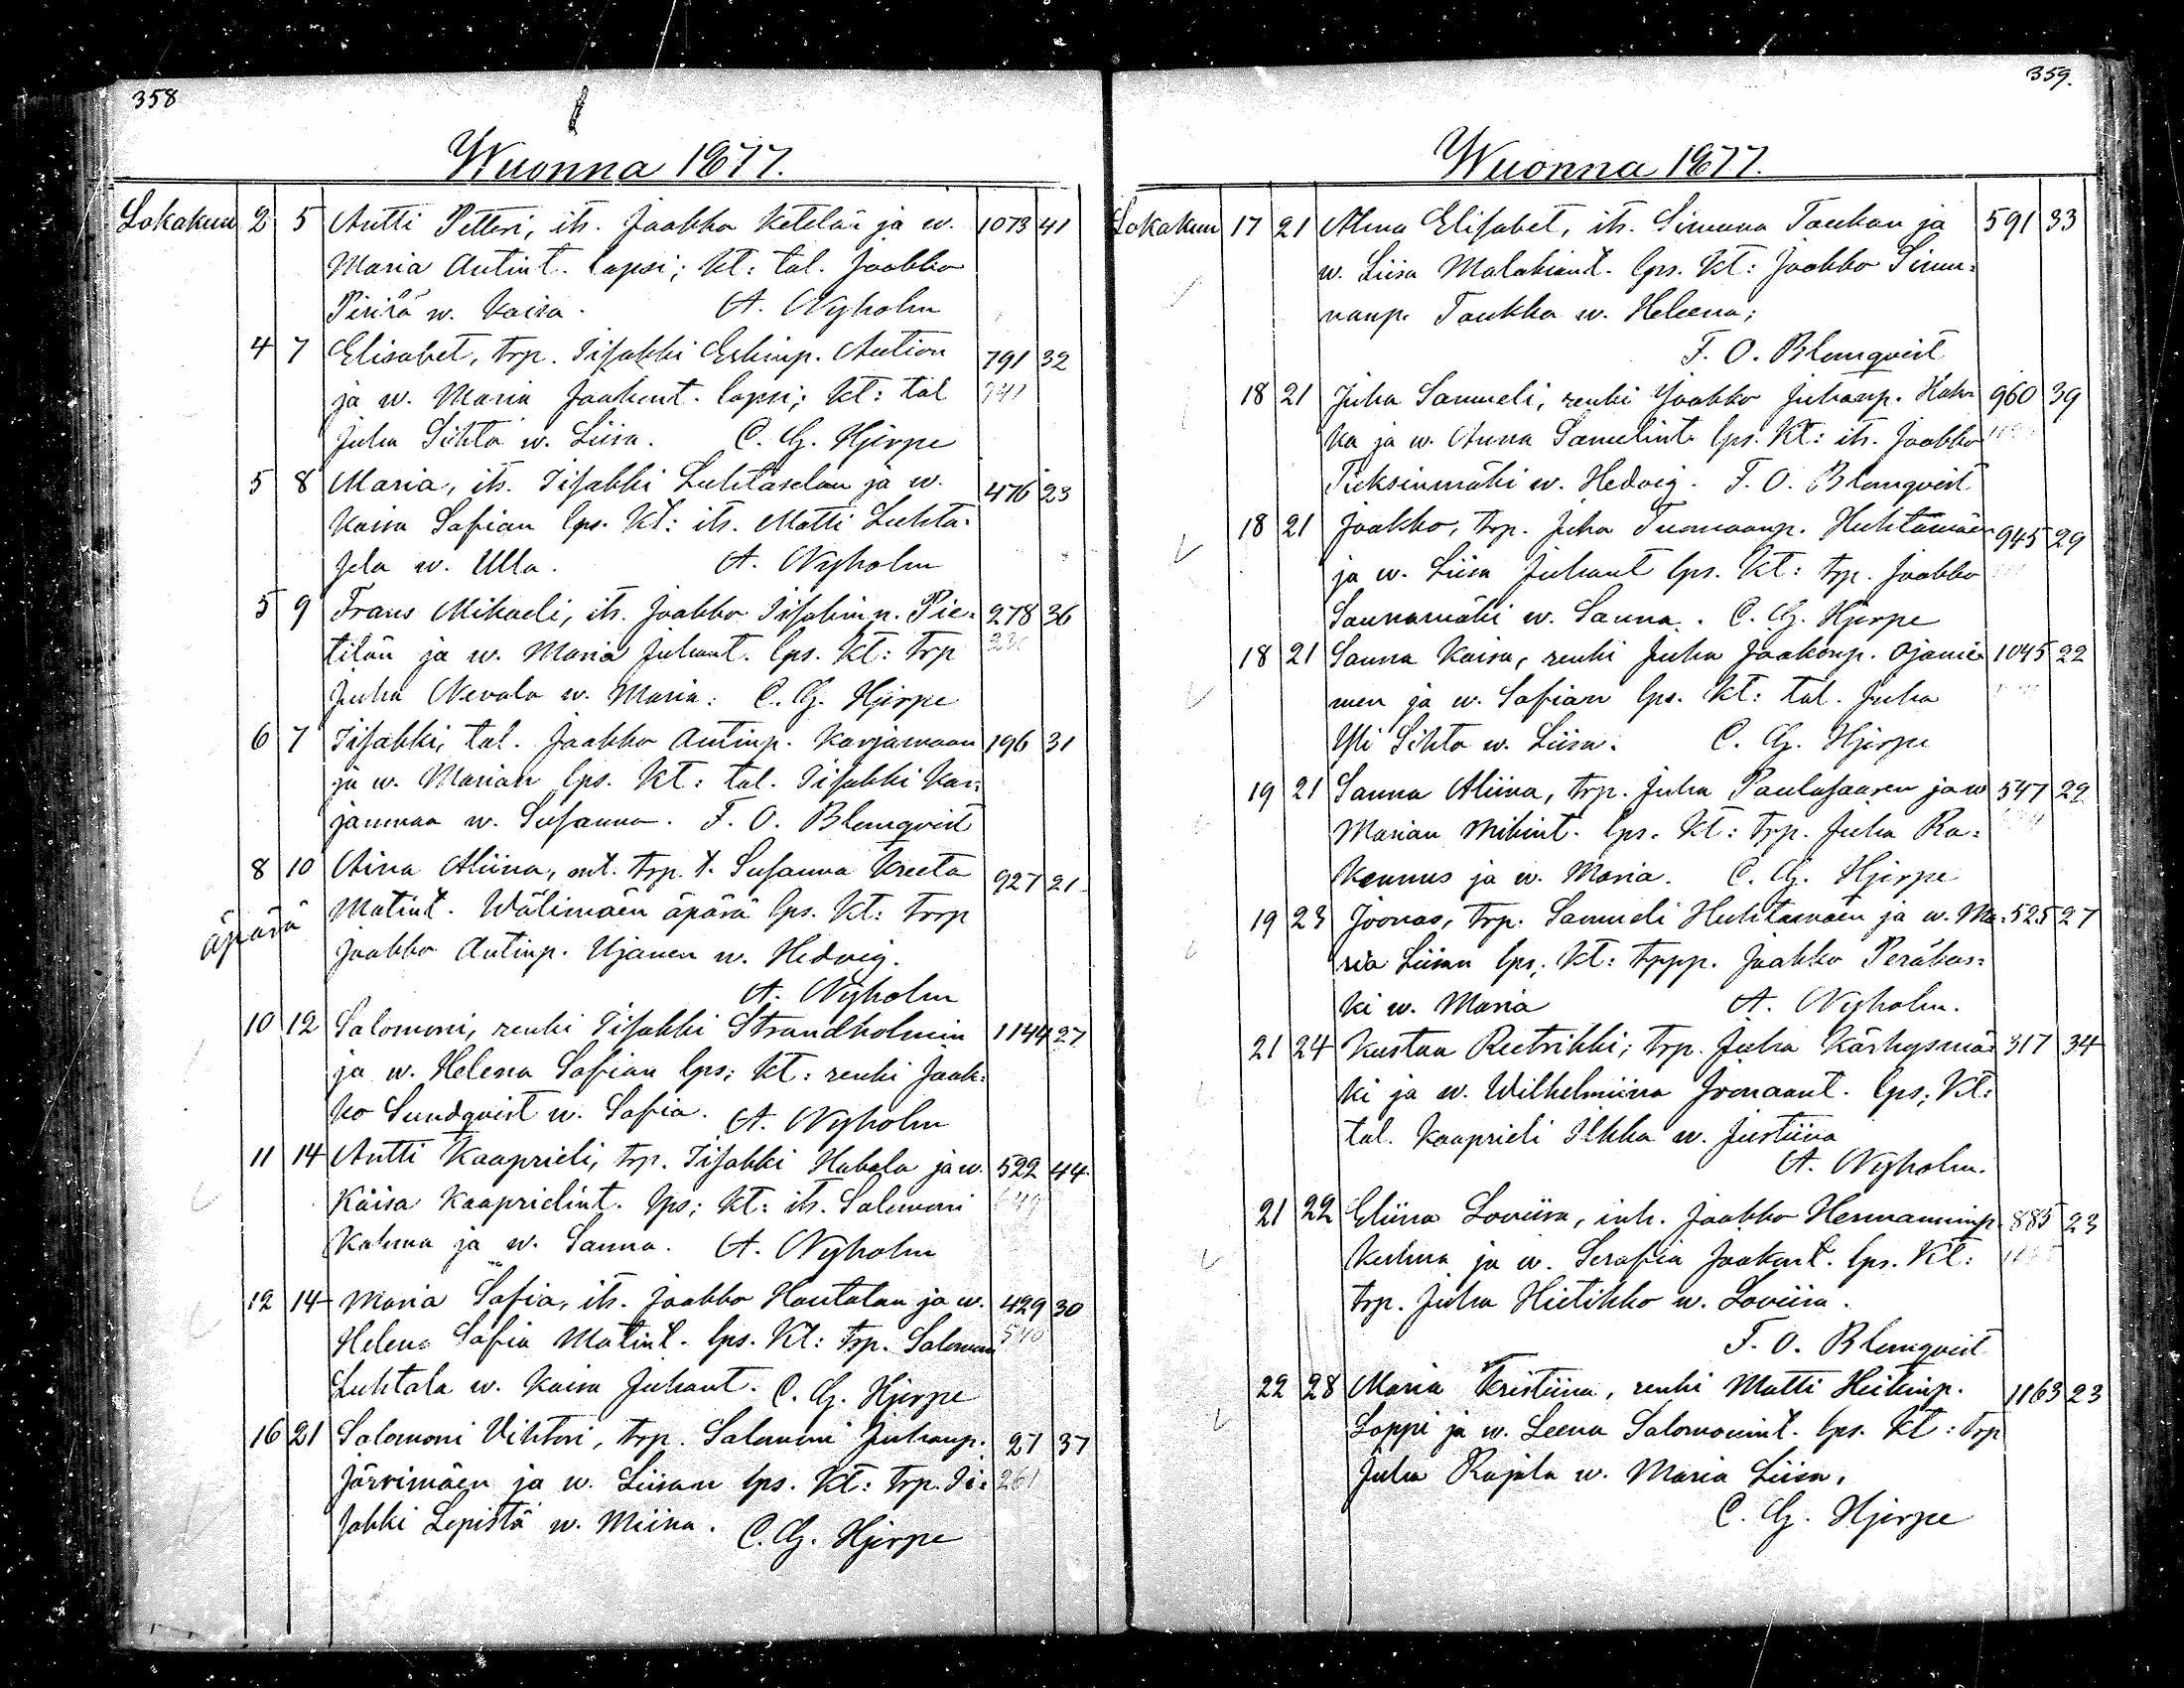 358
Wuonna 1877.
Lokakuu 2 5 Antti Petteri, its. Jaakko Ketelän ja w. 1073 41
Maria Antint. lapsi; kt: tal. Jaakko
Piriiä w. Kaisa. A. Nyholm
4 7 Elisabet, trp. Iisakki Eskinp. Aution 791 32
ja w. Maria Jaakont. lapsi; kt: tal 941
Juha Sihto w. Liisa. C. G. Hjerpe
5 8 Maria, its. Iisakki Luhtaselan ja w. 476 23
Kaisa Sofian lps. Kt: its. Matti Luhta-
sela w. Ulla. A. Nyholm
5 9 Frans Mikaeli, its. Jaakko Iisakinp. Pie- 278 36
tilän ja w. Maria Juhant. lps. Kt: trp
Juha Nevala w. Maria: C. G. Hjerpe
6 7 Iisakki, tal. Jaakko Antinp. Karjamaan 196 31
ja w. Marian lps. Kt: tal. Iisakki Kar-
jamaa w. Susanna. F. O. Blomqvist
8 10 Aina Aliina, mt. trp. t. Susanna Kreeta 927 21
äpärä Matint. Wälimäen äpärä lps. Kt: trp
Jaakko Antinp. Ujanen w. Hedvig.
A. Nyholm
10 12 Salomoni, renki Iisakki Strandholmin 1144 27
ja w. Helena Sofian lps; kt: renki Jaak-
ko Sundqvist w. Sofia. A. Nyholm
11 14 Antti Kaaprieli, trp. Iisakki Hakala ja w. 522 44
Kaisa Kaaprielint. lps; kt: its. Salomoni
Kahma ja w. Sanna. A. Nyholm
12 14 Maria Sofia, its. Jaakko Hautalan ja w. 429 30
Helena Sofia Matint. lps. Kt: trp. Salomoni 540
Luhtala w. Kaisa Juhant. C. G. Hjerpe
16 21 Salomoni Vihtori, trp. Salomoni Juhanp. 27 37
Järvimäen ja w. Liisan lps. Kt: trp. Ii- 261
sakki Lepistö w. Miina. C. G. Hjerpe
359.
Wuonna 1877.
Lokakuu 17 21 Alma Elisabet, its. Simuna Taukan ja 591 33
w. Liisa Malakiant. lps. Kt: Jaakko Simu-
nanp. Taukka w. Heleena;
F. O. Blomqvist
18 21 Juha Samueli, renki Jaakko Juhanp. Hak- 960 39
ka ja w. Anna Samelint. lps. Kt: its. Jaakko
Tieksinmäki w. Hedvig. F. O. Blomqvist
18 21 Jaakko, trp. Juha Tuomaanp. Huhtamäen 945 29
ja w. Liisa Juhant lps. Kt: trp. Jaakko
Saunamäki w. Sanna. C. G. Hjerpe
18 21 Sanna Kaisa, renki Juha Jaakonp. Ojanie- 1045 22
men ja w. Sofian lps. Kt: tal. Juha
Yli Sihto w. Liisa. C. G. Hjerpe
19 21 Sanna Aliina, trp. Juha Paulasaaren ja w 547 29
Marian Mikint. lps. Kt: trp. Juha Ra-
kennus ja w. Maria. C. G. Hjerpe
19 23 Joonas, trp. Samueli Huhtamäen ja w. Ma- 525 27
ria Liisan lps; kt: trpp. Jaakko Peräkos-
ki w. Maria A. Nyholm.
21 24 Kustaa Reetrikki; trp. Juha Kärkysmä- 317 34
ki ja w. Wilhelmiina Joonaant. lps; Kt:
tal. Kaaprieli Ilkka w. Justiina
A. Nyholm.
21 22 Eliina Loviisa, inh. Jaakko Hermanninp 885 23
Kuhna ja w. Serafia Jaakont. lps. Kt:
trp. Juha Hietikko w. Loviisa.
F. O. Blomqvist
22 28 Maria Kristiina, renki Matti Heikinp. 1163 23
Loppi ja w. Leena Salomonint. lps. Kt: trp
Juha Rajala w. Maria Liisa,
C. G. Hjerpe